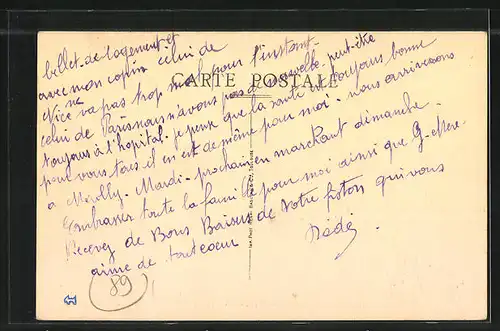 billet de logement et
avec mon copin celui de
Nice ne va pas trop mal pour l'instant
CARTE POSTALE
celui de Paris nous n'avons pas de nouvelle. peut-être
toujours à l'hôpital. je pense que la santé est toujours bonne
pour vous tous il en est de même pour moi. nous arriverons
a Mardi. prochain en marchant dimanche.
Embrasser toute la famille pour moi ainsi que G-mère
Recevez de Bons Baisers de votre fiston qui vous
aime de tout coeur
Dédé
89